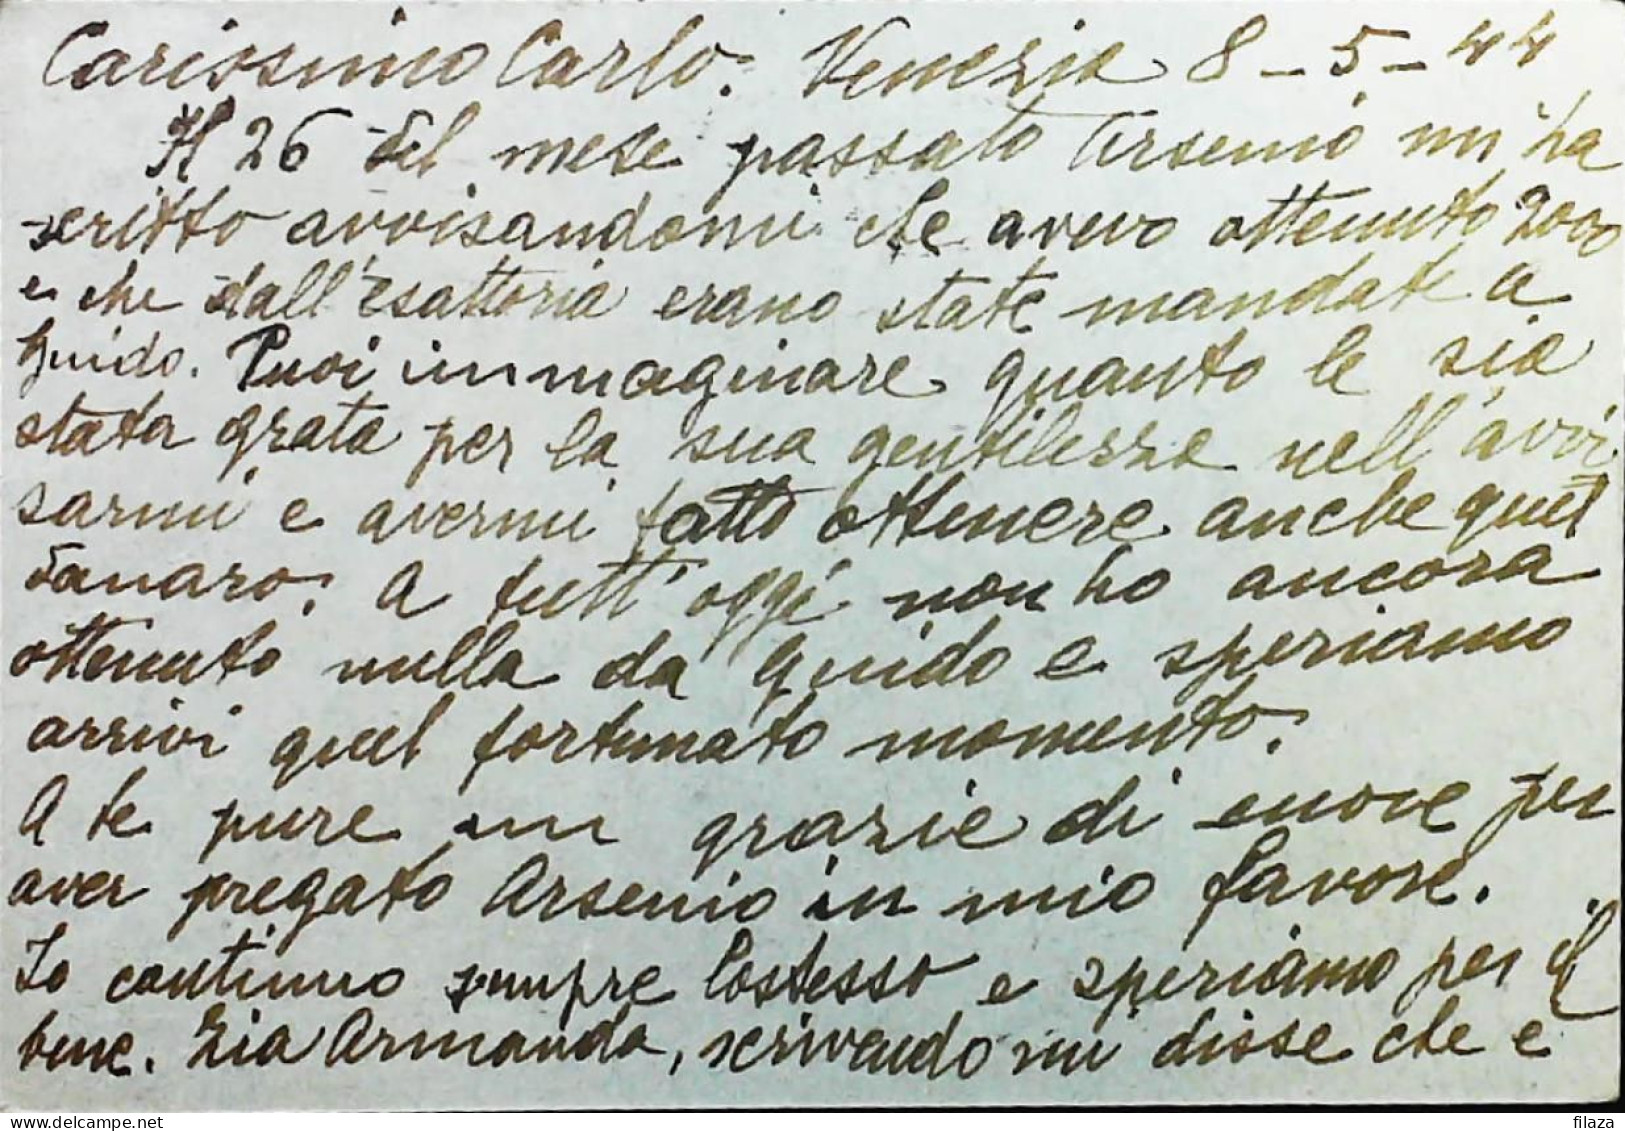 Carissimo Carlo. Venezia 8-5-44
Il 26 del mese passato Arsenio mi ha
scritto avvisandomi che avevo ottenuto 2000
e che dall'Esattoria erano state mandate a
Guido. Puoi immaginare quanto le sia
stata grata per la sua gentilezza nell'avvi
sarmi e avermi fatto ottenere anche quel
danaro. A tutt'oggi non ho ancora
ottenuto nulla da Guido e speriamo
arrivi quel fortunato momento.
A te pure un grazie di cuore per
aver pregato Arsenio in mio favore.
Io continuo sempre lostesso e speriamo per il
bene. Zia Armanda, scrivendomi disse che e
filaza